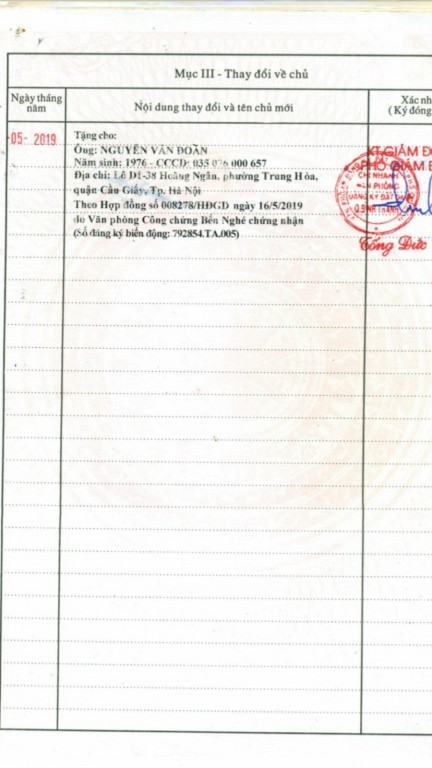 Mục III - Thay đổi về chủ
Ngày tháng năm
Nội dung thay đổi và tên chủ mới
Xác nh
( Ký đóng
-05- 2019
Tặng cho:
Ông: NGUYỄN VĂN ĐOÀN
Năm sinh: 1976 - CCCD: 035 076 000 657
Địa chỉ: Lô D1-38 Hoàng Ngân, phường Trung Hòa,
quận Cầu Giấy, Tp. Hà Nội
Theo Hợp đồng số 008278/HĐGD ngày 16/5/2019
do Văn phòng Công chứng Bến Nghé chứng nhận
(Số đăng ký biến động: 792854.TA.005)
KT.GIÁM Đ
PHÓ GIÁM Đ
CHI NHÁNH
VĂN PHÒNG
ĐĂNG KÝ ĐẤT ĐAI
Tống Đức